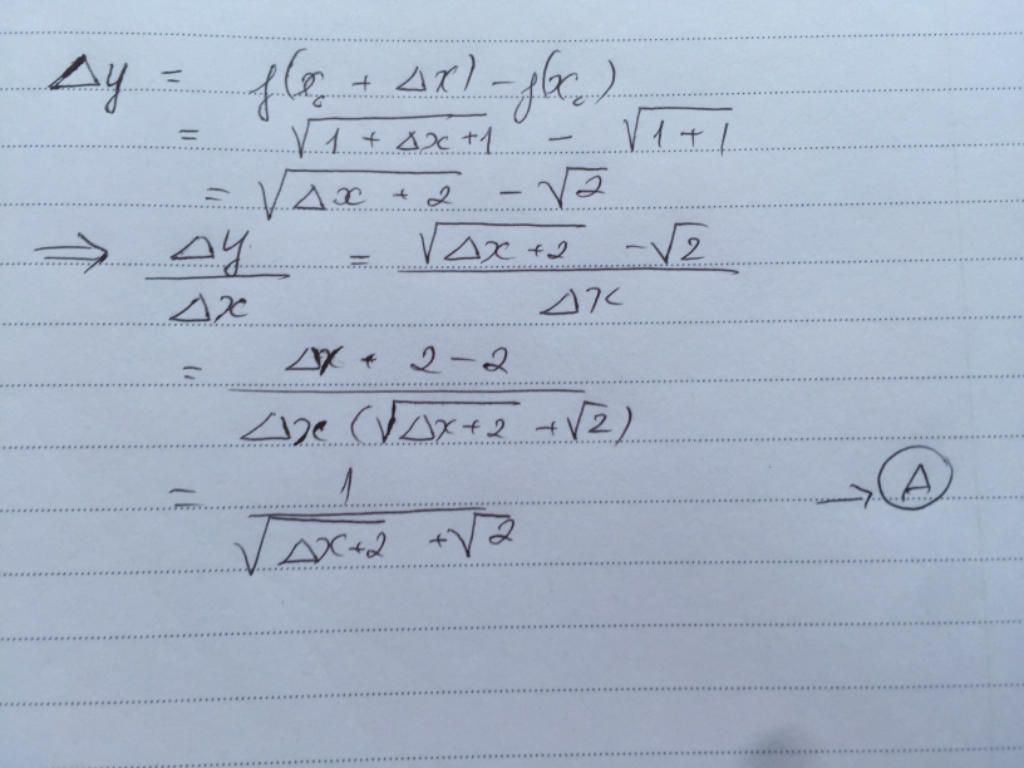 Δy = f(x₀ + Δx) - f(x₀)
= √(1 + Δx + 1) - √(1 + 1)
= √(Δx + 2) - √2
⇒ Δy/Δx = (√(Δx + 2) - √2)/Δx
= (Δx + 2 - 2)/(Δx (√(Δx + 2) + √2))
= 1/(√(Δx + 2) + √2) → Ⓐ